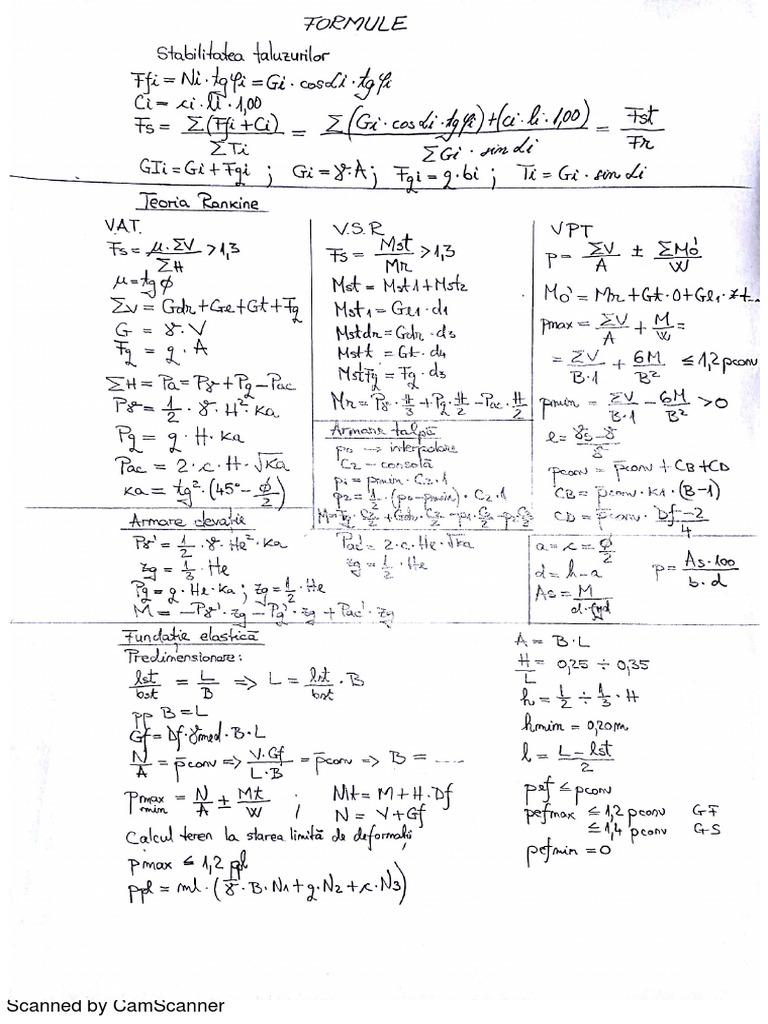 FORMULE
Stabilitatea taluzurilor
Ffi = Ni · tg φi = Gi · cos αi · tg φi
Ci = ci · li · 1,00
Fs = Σ(Ffi + Ci) / ΣTi = Σ(Gi · cos αi · tg φi) + (ci · li · 1,00) / ΣGi · sin αi = Fst / Fr
GTi = Gi + Fqi ; Gi = γ · A ; Fqi = q · bi ; Ti = Gi · sin αi
Teoria Rankine
V.A.T.
Fs = μ · ΣV / ΣH > 1,3
μ = tg φ
ΣV = Gdr + Ge + Gt + Fq
G = γ · V
Fq = q · A
ΣH = Pa = Pγ + Pq - Pac
Pγ = 1/2 · γ · H² · Ka
Pq = q · H · Ka
Pac = 2 · c · H · √Ka
Ka = tg² · (45° - φ/2)
V.S.R
Fs = Mst / Mr > 1,3
Mst = Mst1 + Mst2
Mst1 = Ge1 · d1
Mstdr = Gdr · d3
Mstt = Gt · d4
MstFq = Fq · d3
Mr = Pγ · H/3 + Pq · H/2 - Pac · H/2
Armare talpă
po → interpolare
C2 - consolă
p1 = pmin · C2 · 1
p2 = 1/2 · (po - pmin) · C2 · 1
VPT
p = ΣV / A ± ΣMo' / W
Mo' = Mr + Gt · 0 + Ge1 · z1..
pmax = ΣV / A + M / W =
= ΣV / B · 1 + 6M / B² ≤ 1,2 pconv
pmin = ΣV / B · 1 - 6M / B² > 0
pconv = p̄conv + CB + CD
CB = p̄conv · K1 · (B - 1)
CD = p̄conv · Df - 2 / 4
Armare elevație
Pγ' = 1/2 · γ · He² · Ka
zg = 1/3 · He
Pq = q · He · Ka ; zg = 1/2 · He
M = -Pγ' · zg - Pq' · zg + Pac' · zg
Pac' = 2 · c · He · √Ka
zg = 1/2 · He
a = c = φ/2
d = h - a
As = M / d · fyd
p = As · 100 / b · d
Fundație elastică
Predimensionare:
lst / bst = L / B => L = lst / bst · B
pp B = L
Gf = Df · γmed · B · L
N / A = p̄conv => V · Gf / L · B = p̄conv => B = ....
pmax min = N / A ± Mt / W ; Mt = M + H · Df
N = V + Gf
Calcul teren la starea limită de deformații
pmax ≤ 1,2 ppl
ppl = ml · (γ̄ · B · N1 + q · N2 + c · N3)
A = B · L
H / L = 0,25 ÷ 0,35
h = 1/2 ÷ 1/3 · H
hmin = 0,20m
l = L - lst / 2
pef ≤ pconv
pefmax ≤ 1,2 pconv GF
≤ 1,4 pconv GS
pefmin = 0
Scanned by CamScanner